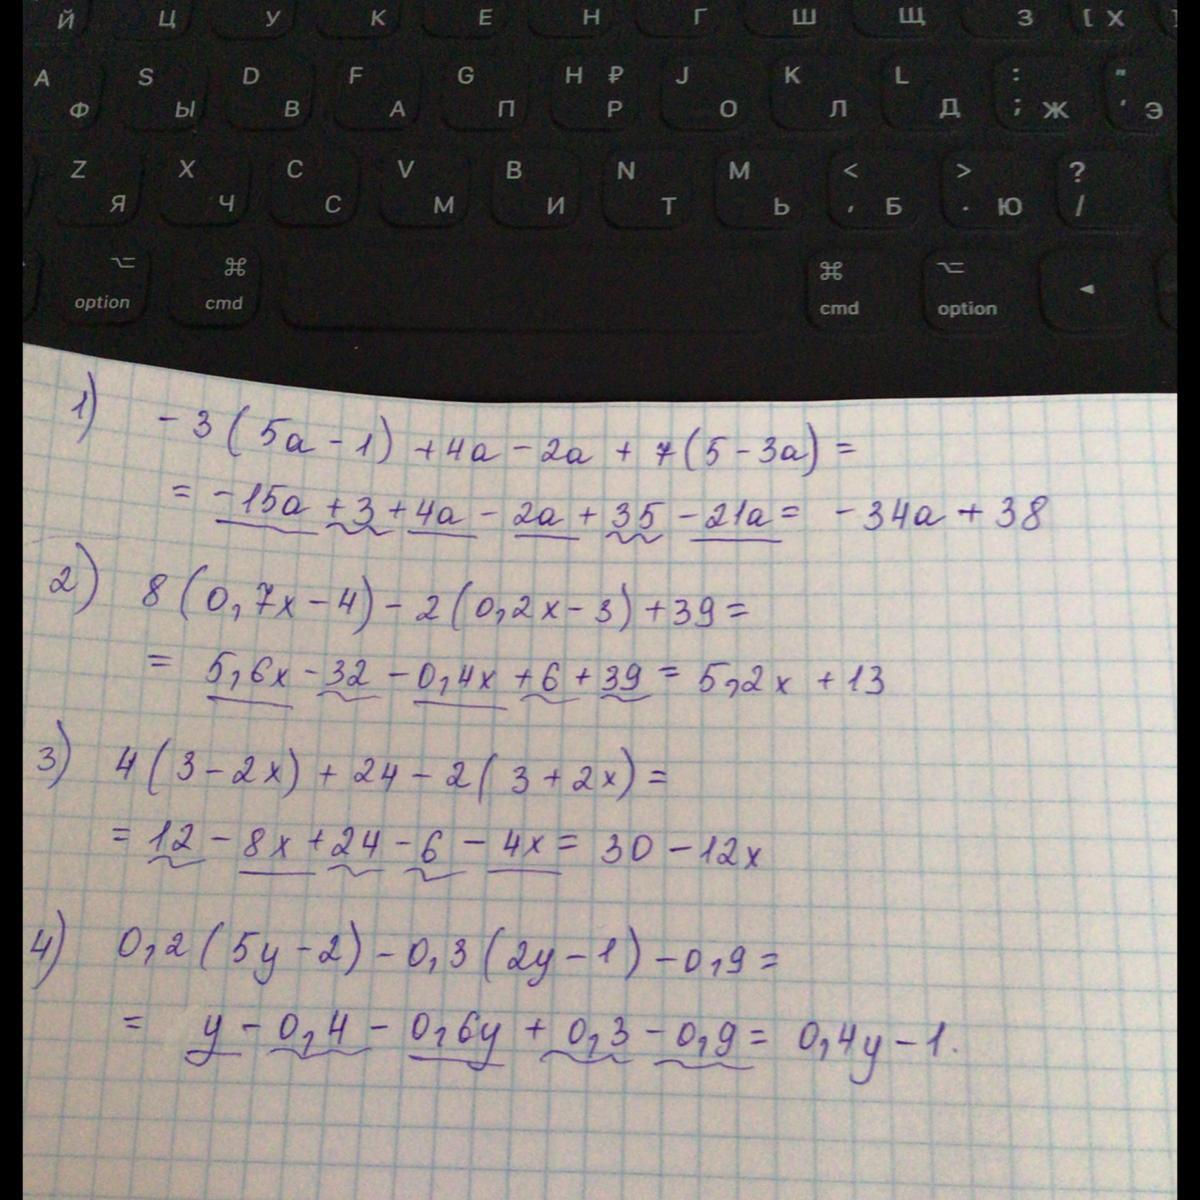 Й Ц У К Е Н Г Ш Щ З [ Х ]
A Ф S Ы D В F А G П H ₽ Р J О K Л L Д : ; Ж " ' Э
Z Я X Ч C С V М B И N Т M Ь < , Б > . Ю ? /
⌥ option ⌘ cmd ⌘ cmd ⌥ option ◄
1) -3(5a-1)+4a-2a+7(5-3a)=
= -15a+3+4a-2a+35-21a= -34a+38
2) 8(0,7x-4)-2(0,2x-3)+39=
= 5,6x-32-0,4x+6+39= 5,2x+13
3) 4(3-2x)+24-2(3+2x)=
= 12-8x+24-6-4x= 30-12x
4) 0,2(5y-2)-0,3(2y-1)-0,9=
= y-0,4-0,6y+0,3-0,9= 0,4y-1.